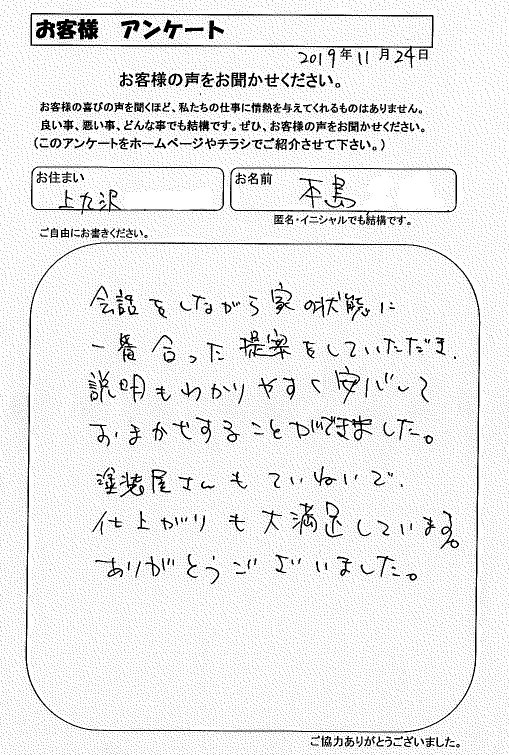 お客様　アンケート
2019年11月24日
お客様の声をお聞かせください。
お客様の喜びの声を聞くほど、私たちの仕事に情熱を与えてくれるものはありません。
良い事、悪い事、どんな事でも結構です。ぜひ、お客様の声をお聞かせください。
(このアンケートをホームページやチラシでご紹介させて下さい。)
お住まい
上九沢
お名前
本島
匿名・イニシャルでも結構です。
ご自由にお書きください。
会話をしながら家の状態に
一番合った提案をしていただき、
説明もわかりやすく安心して
おまかせすることができました。
塗装屋さんもていねいで、
仕上がりも大満足しています。
ありがとうございました。
ご協力ありがとうございました。